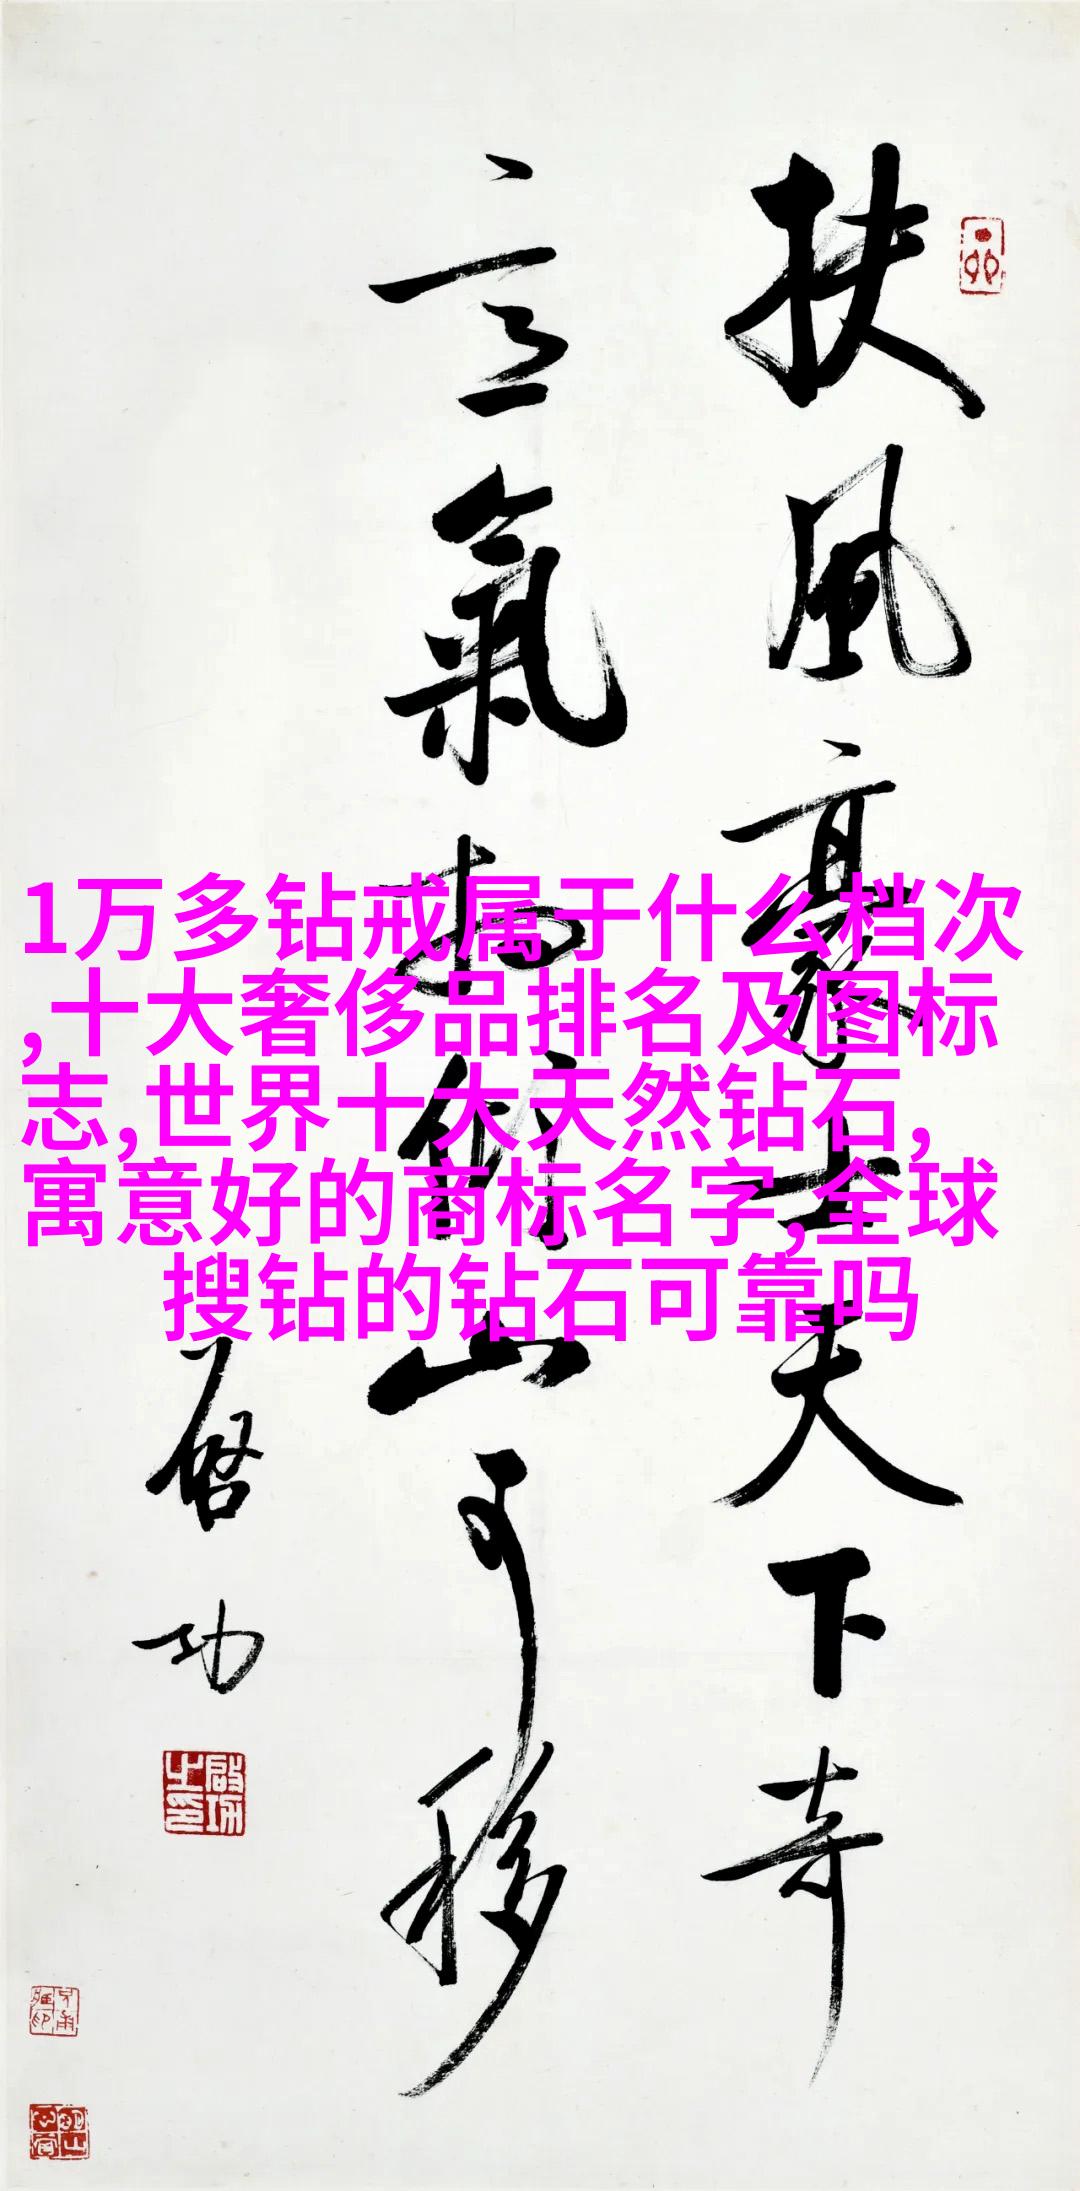 扶風豪士天下奇
意氣相傾山可移
啓功
啓功之印
1万多钻戒属于什么档次
,十大奢侈品排名及图标
志,世界十大天然钻石,
寓意好的商标名字,全球
搜钻的钻石可靠吗